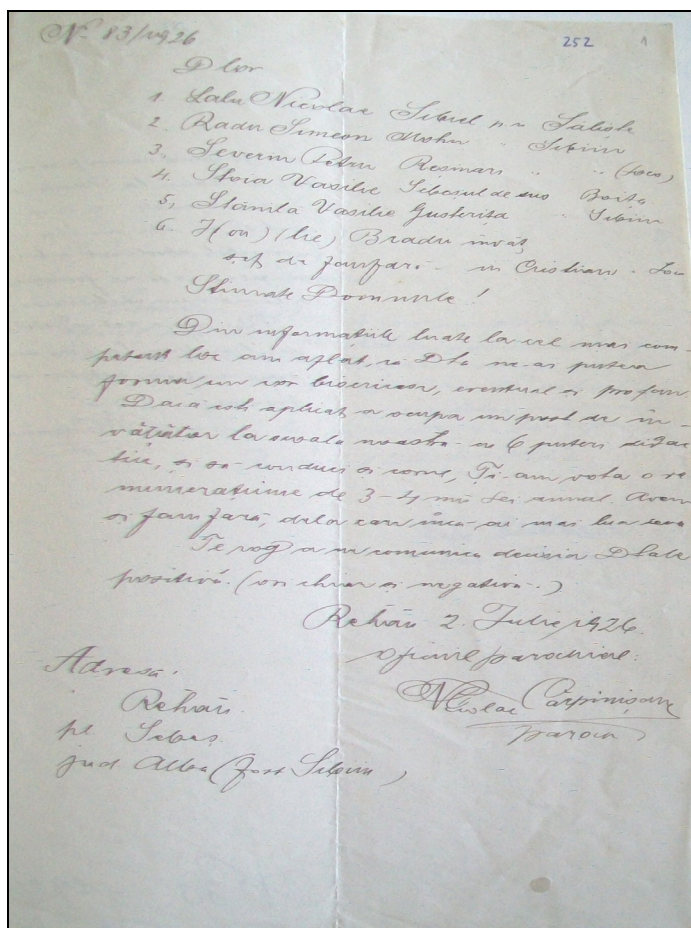 No 83/1926
252 1
Dlor
1. Lalu Nicolae Sibiel p. u. Săliște
2. Radu Simeon Mohu " Sibiiu
3, Severin Petru Reșinari " " (loco)
4. Stoia Vasilie Sebeșul de sus Boița
5, Stămila Vasilie Gusterița " Sibiiu
6. I(on) (Ilie) Bradu învăț,
șef de fanfară - in Cristian - Loco
Stimate Domnule!
Din informatiile luate la cel mai com-
petent loc am aflat, că Dta ne-ai putea
forma un cor bisericesc, eventual si profan
Dacă ești aplicat a ocupa un post de în-
vățător la scoala noastră - cu 6 puteri didac
tice, si să conduci si corul, Ti-am vota o re
munerațiune de 3-4 mii Lei anual. Avem
si fanfară, dela care încă ai mai lua ceva
Te rog a ne comunica decisia Dtale
positivă. (ori chiar si negativă.)
Rehău 2. Iulie 1926.
Oficiul parochial:
Nicolae Cărpinișan
paroch
Adresa:
Rehău
pl Sebeș
jud Alba (fost Sibiiu)